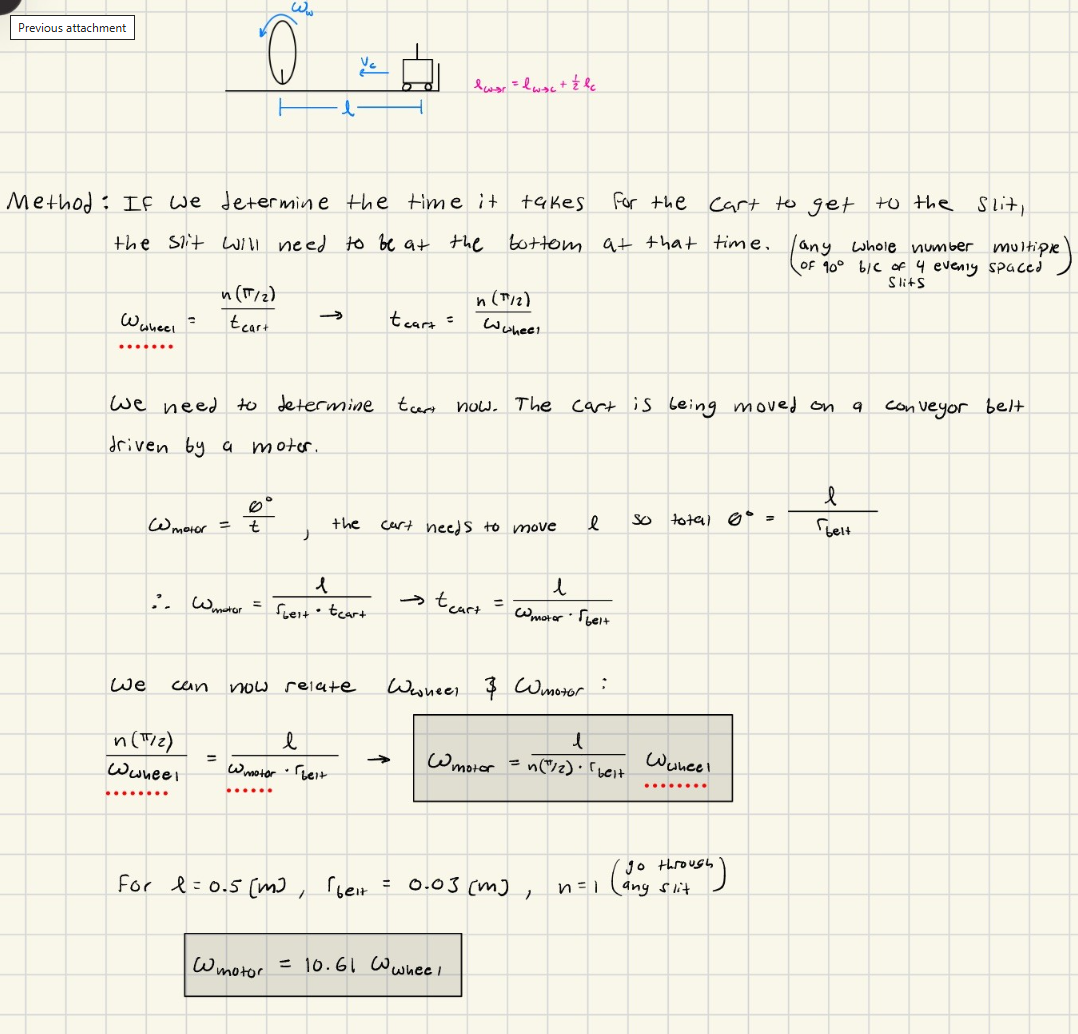 Previous attachment
ω_w
v_c
l
l_{w→r} = l_{w→c} + 1/2 l_c
Method: If we determine the time it takes for the cart to get to the slit,
the slit will need to be at the bottom at that time. (any whole number multiple
of 90° b/c of 4 evenly spaced
slits)
ω_wheel = n(π/2) / t_cart → t_cart = n(π/2) / ω_wheel
We need to determine t_cart now. The cart is being moved on a conveyor belt
driven by a motor.
ω_motor = θ° / t , the cart needs to move l so total θ° = l / r_belt
∴ ω_motor = l / (r_belt · t_cart) → t_cart = l / (ω_motor · r_belt)
We can now relate ω_wheel & ω_motor :
n(π/2) / ω_wheel = l / (ω_motor · r_belt) → ω_motor = l / (n(π/2) · r_belt) ω_wheel
For l = 0.5 [m], r_belt = 0.03 [m], n = 1 (go through
any slit)
ω_motor = 10.61 ω_wheel